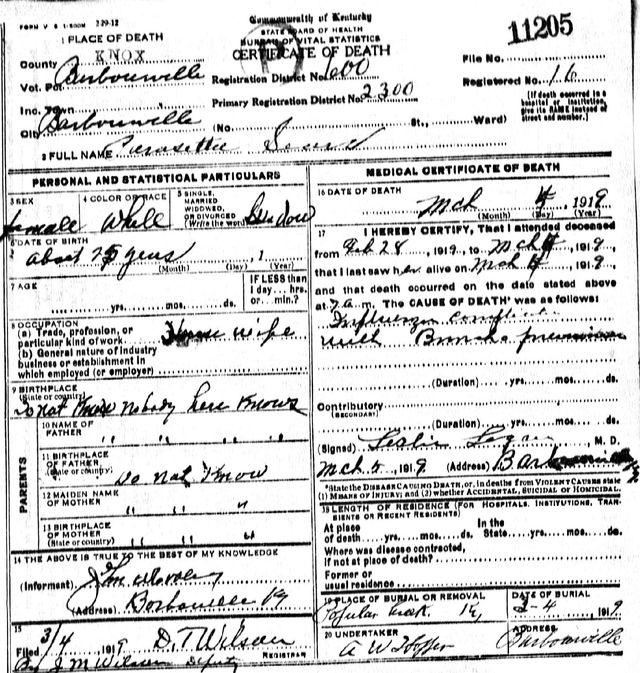 FORM V S 1-500M 2-29-12
Commonwealth of Kentucky
STATE BOARD OF HEALTH
BUREAU OF VITAL STATISTICS
CERTIFICATE OF DEATH
11205
1 PLACE OF DEATH
County KNOX
Vot. Pct. Barbourville
Registration District No. 600
File No.
Inc. Town
Primary Registration District No. 2300
Registered No. 16
City Barbourville
(No. St., Ward)
(If death occurred in a
hospital or institution,
give its NAME instead of
street and number.)
2 FULL NAME
PERSONAL AND STATISTICAL PARTICULARS
3 SEX
female
4 COLOR OR RACE
White
5 SINGLE,
MARRIED
WIDOWED,
OR DIVORCED
(Write the word)
Widow
6 DATE OF BIRTH
about 75 years, 1
(Month) (Day) (Year)
7 AGE
yrs. mos. ds.
IF LESS than
1 day... hrs.
or... min.?
8 OCCUPATION
(a) Trade, profession, or
particular kind of work House wife
(b) General nature of industry
business or establishment in
which employed (or employer)
9 BIRTHPLACE
(State or country)
Do not Know nobody here Knows
PARENTS
10 NAME OF
FATHER " " " "
11 BIRTHPLACE
OF FATHER
(State or country)
Do not Know
12 MAIDEN NAME
OF MOTHER " " "
13 BIRTHPLACE
OF MOTHER
(State or country) " " "
14 THE ABOVE IS TRUE TO THE BEST OF MY KNOWLEDGE
(Informant)
(Address) Barbourville Ky
15
Filed 3/4 1919 D. T. Wilson
REGISTRAR
By J. M. Wilson Deputy
MEDICAL CERTIFICATE OF DEATH
16 DATE OF DEATH
Mch 4, 1919
(Month) (Day) (Year)
17 I HEREBY CERTIFY, That I attended deceased
from Feb 28, 1919, to Mch 4, 1919,
that I last saw her alive on Mch 4, 1919,
and that death occurred on the date stated above
at 7 a.m. The CAUSE OF DEATH* was as follows:
Influenza
with Broncho pneumonia
(Duration) yrs. mos. ds.
Contributory
(SECONDARY)
(Duration) yrs. mos. ds.
(Signed) Leslie Logan, M. D.
Mch 4, 1919 (Address)
*State the DISEASE CAUSING DEATH, or, in deaths from VIOLENT CAUSES state
(1) MEANS OF INJURY; and (2) whether ACCIDENTAL, SUICIDAL or HOMICIDAL.
18 LENGTH OF RESIDENCE (FOR HOSPITALS, INSTITUTIONS, TRANSIENTS OR RECENT RESIDENTS)
At place
of death yrs. mos. ds.
In the
State yrs. mos. ds.
Where was disease contracted,
if not at place of death?
Former or
usual residence
19 PLACE OF BURIAL OR REMOVAL
Ky
DATE OF BURIAL
3-4 1919
20 UNDERTAKER
A W Hopper
ADDRESS
Barbourville